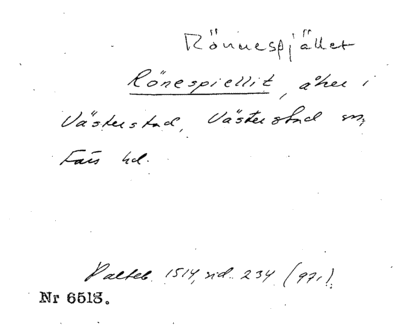 Rönnespjället
Rönespiellit, åker i
Västerstad, Västerstad sn,
Färs hd.
Palteb. 1514, sid. 234 (97,1)
Nr 6513.